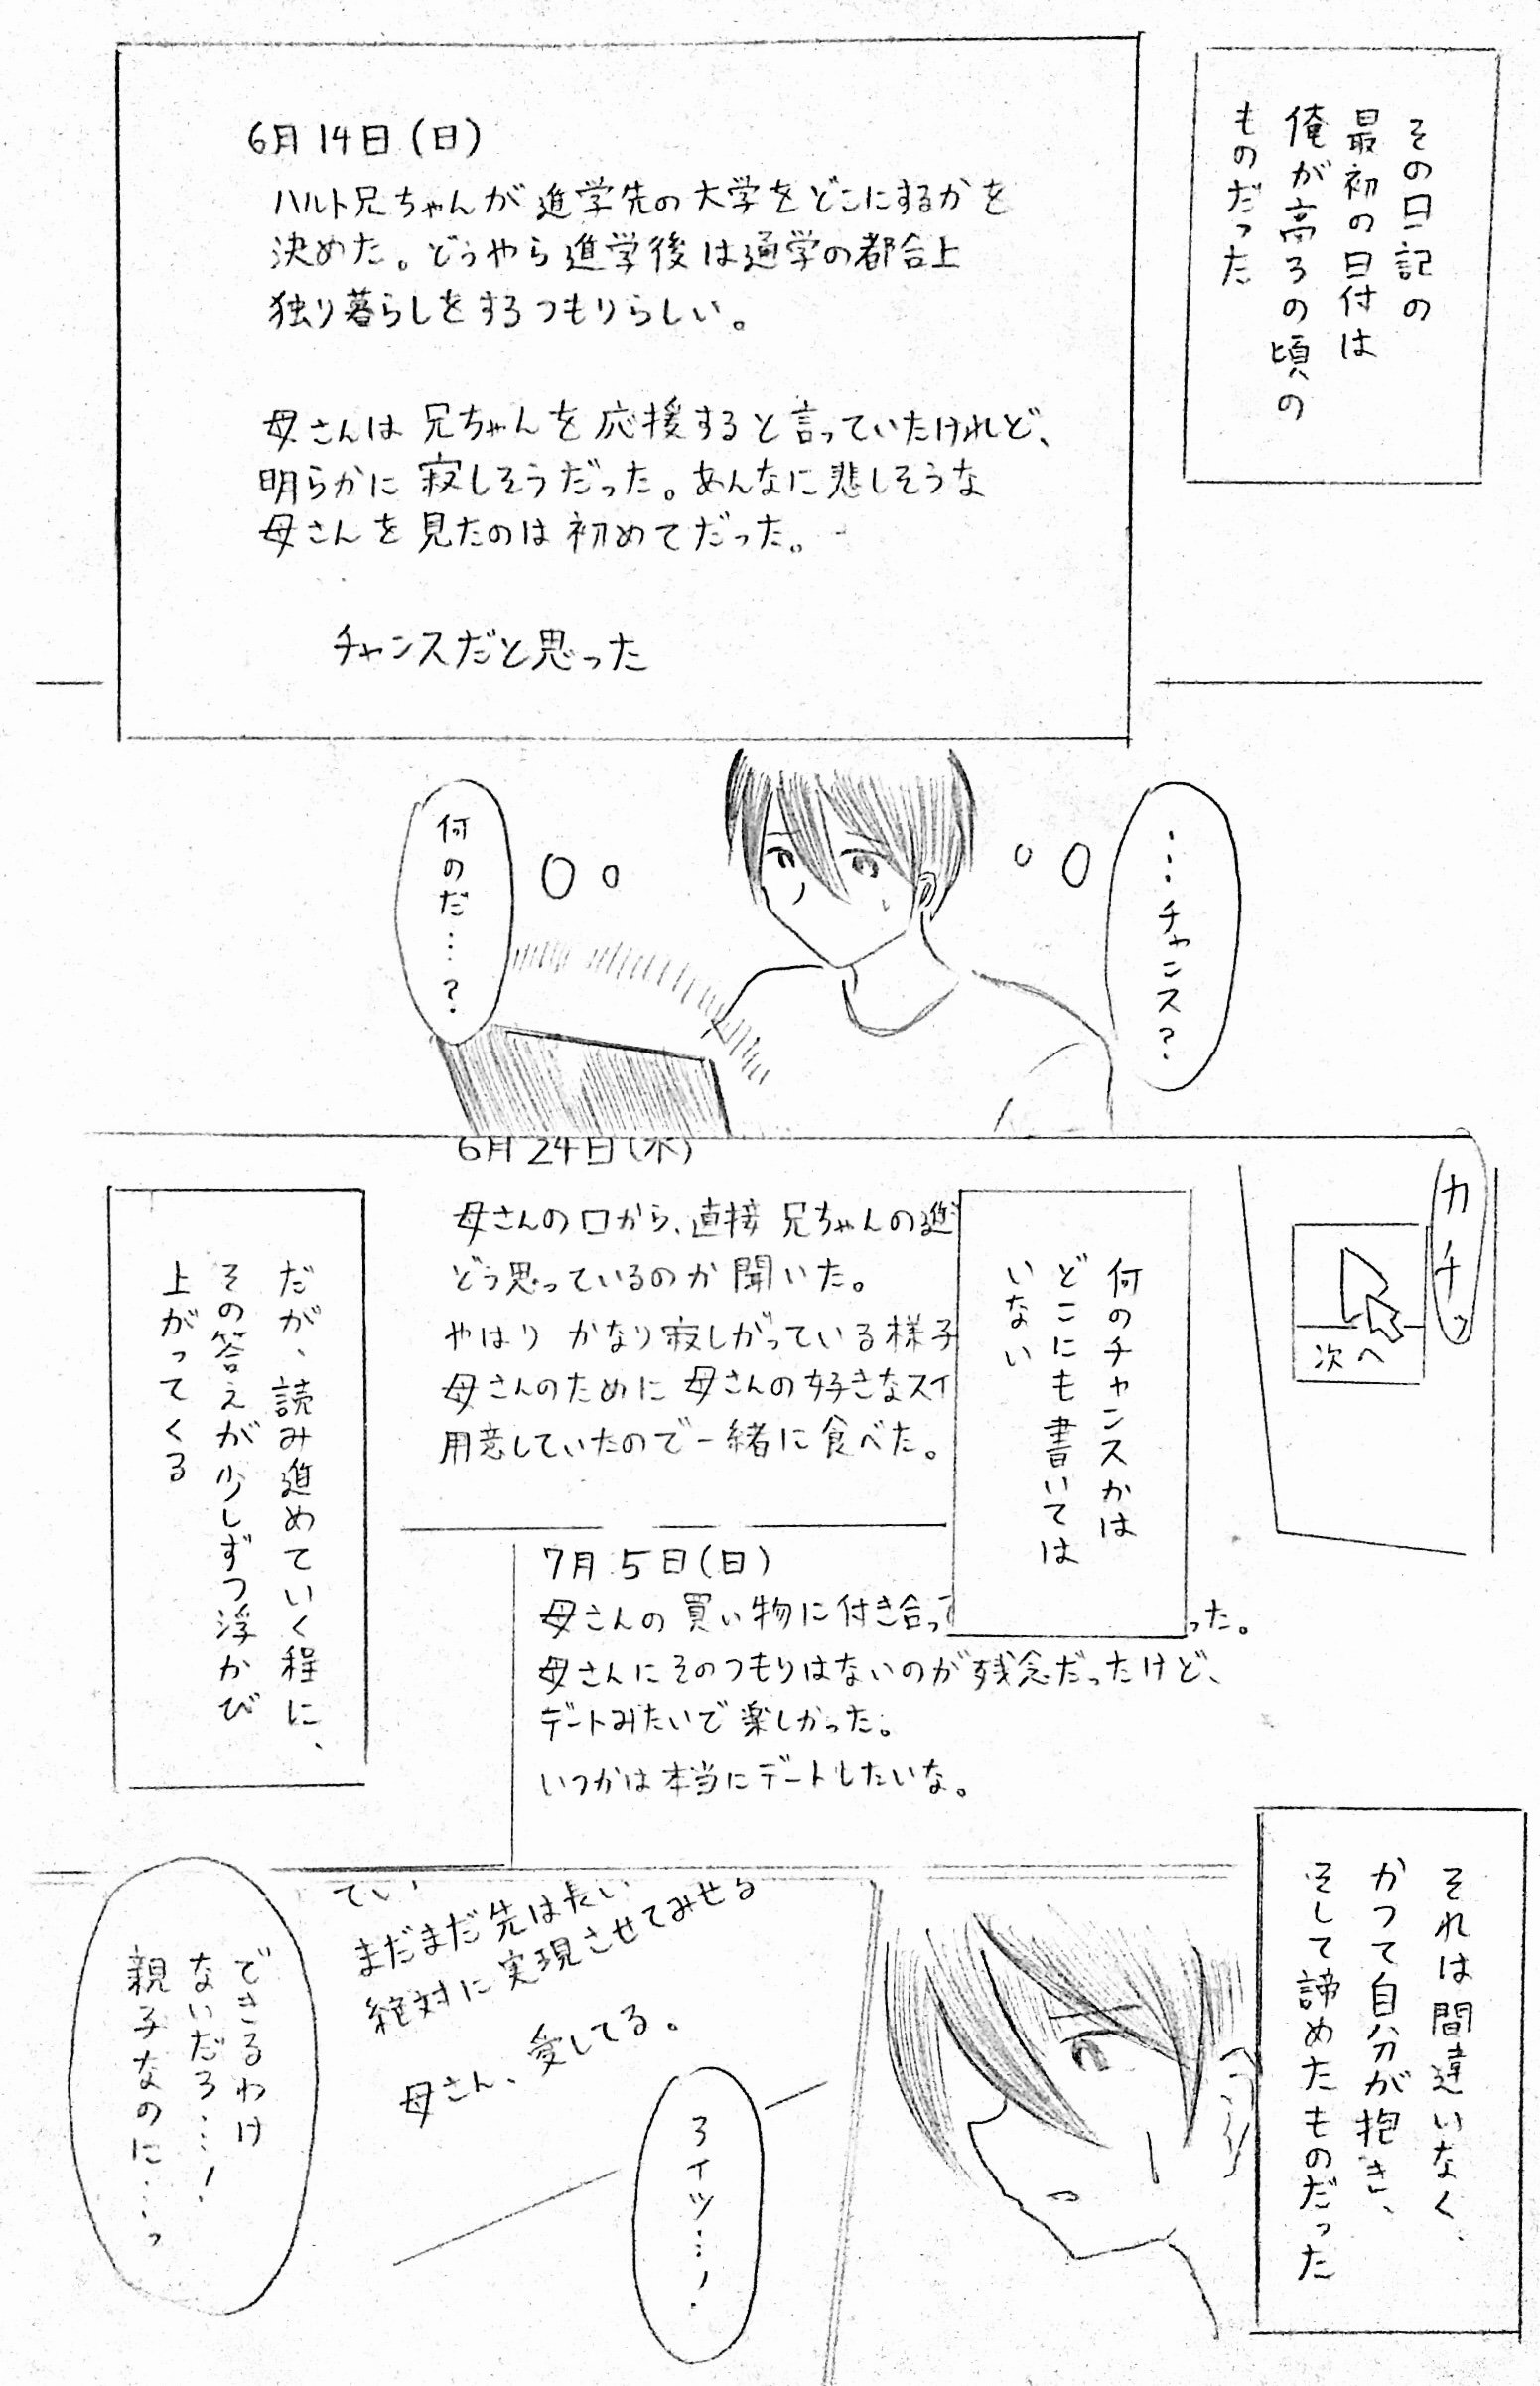 その日記の
最初の日付は
俺が高3の頃の
ものだった
6月14日(日)
ハルト兄ちゃんが進学先の大学をどこにするかを
決めた。どうやら進学後は通学の都合上
独り暮らしをするつもりらしい。
母さんは兄ちゃんを応援すると言っていたけれど、
明らかに寂しそうだった。あんなに悲しそうな
母さんを見たのは初めてだった。
チャンスだと思った
…チャンス?
何のだ…?
カチッ
次へ
何のチャンスかは
どこにも書いては
いない
6月24日(水)
母さんの口から、直接兄ちゃんの進
どう思っているのか聞いた。
やはりかなり寂しがっている様子
母さんのために母さんの好きなスイ
用意していたので一緒に食べた。
7月5日(日)
母さんの買い物に付き合っ
った。
母さんにそのつもりはないのが残念だったけど、
デートみたいで楽しかった。
いつかは本当にデートしたいな。
だが、読み進めていく程に、
その答えが少しずつ浮かび
上がってくる
それは間違いなく、
かつて自分が抱き、
そして諦めたものだった
てい
まだまだ先は長い
絶対に実現させてみせる
母さん、愛してる。
アイツ…!
できるわけ
ないだろ…!
親子なのに…っ